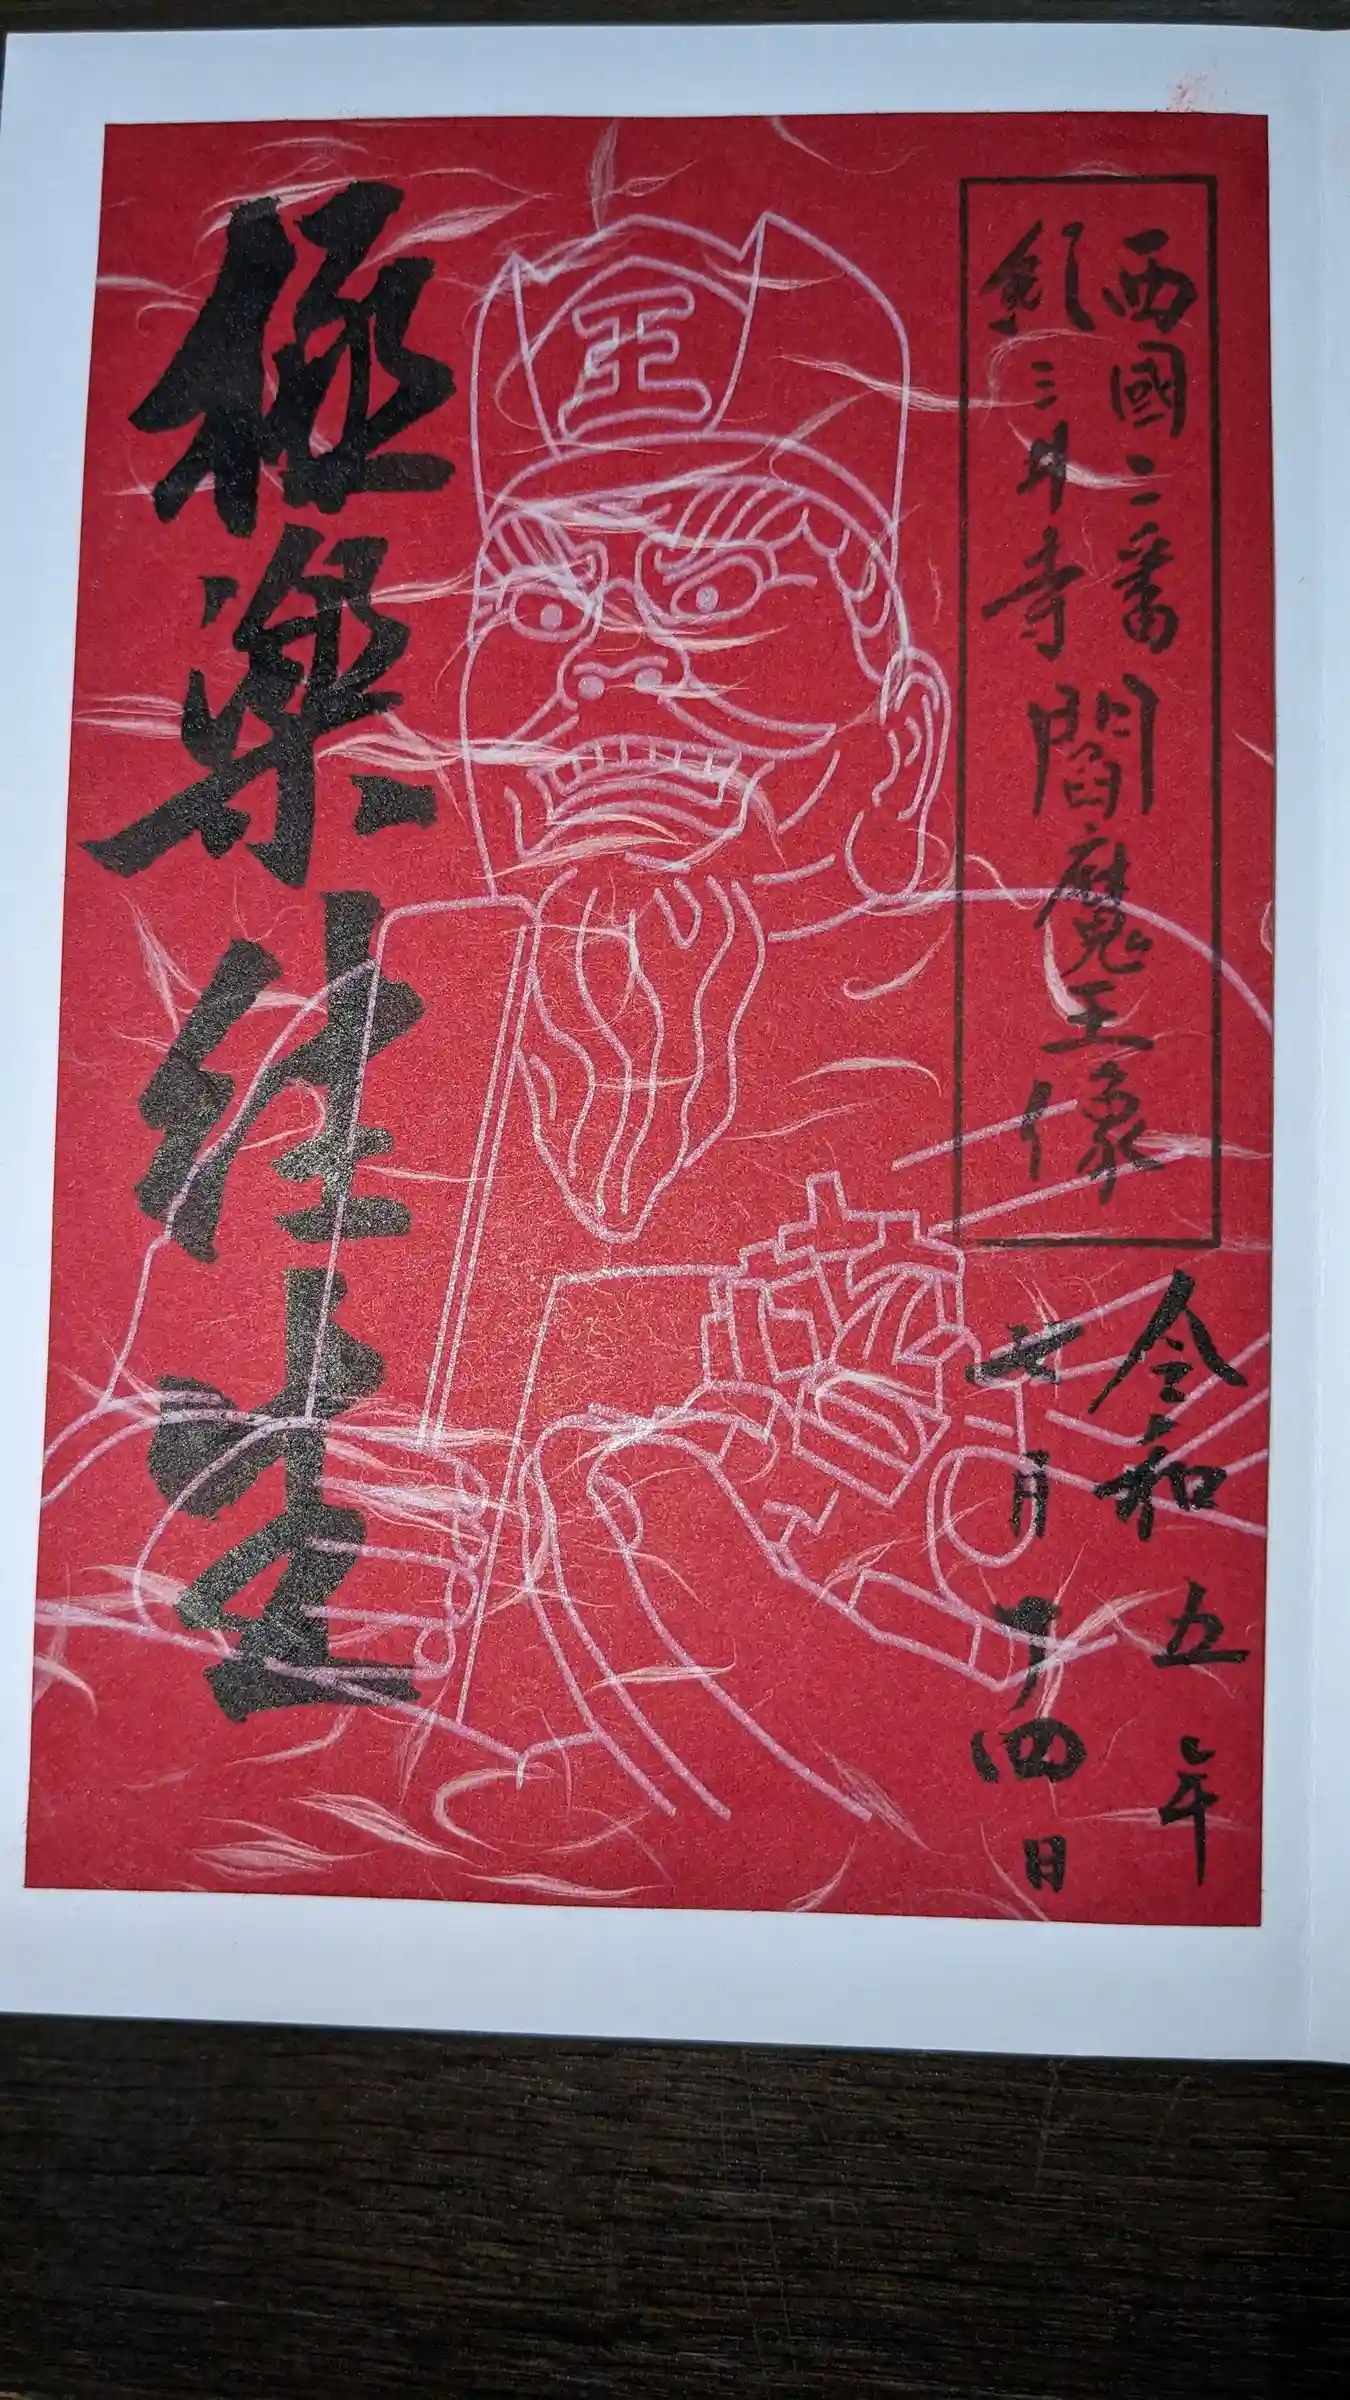 西國二番
紀三井寺
閻魔王像
令和五年
七月十四日
王
極楽往生